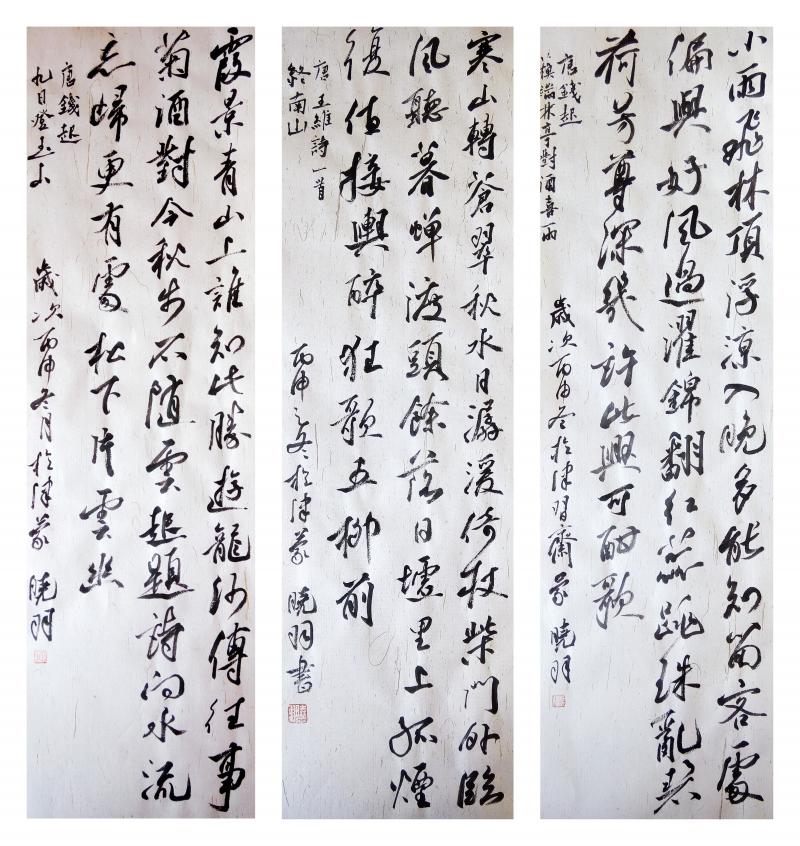 小雨飛林頂浮涼入晚多能知留客處
偏與好風過濯錦翻紅蕊跳珠亂碧
荷芳尊深幾許此興可酣歌
唐錢起
蘇端林亭對酒喜雨
歲次丙申冬於津習齋 曉羽
寒山轉蒼翠秋水日潺湲倚杖柴門外臨
風聽暮蟬渡頭餘落日墟里上孤煙
復值接輿醉狂歌五柳前
唐王維詩一首
終南山
丙申之冬於津 曉羽書
霞景青山上誰知此勝遊龍沙傳往事
菊酒對今秋步石隨雲起題詩向水流
忘歸更有處松下片雲幽
唐錢起
九日登玉山
歲次丙申冬月於津 曉羽